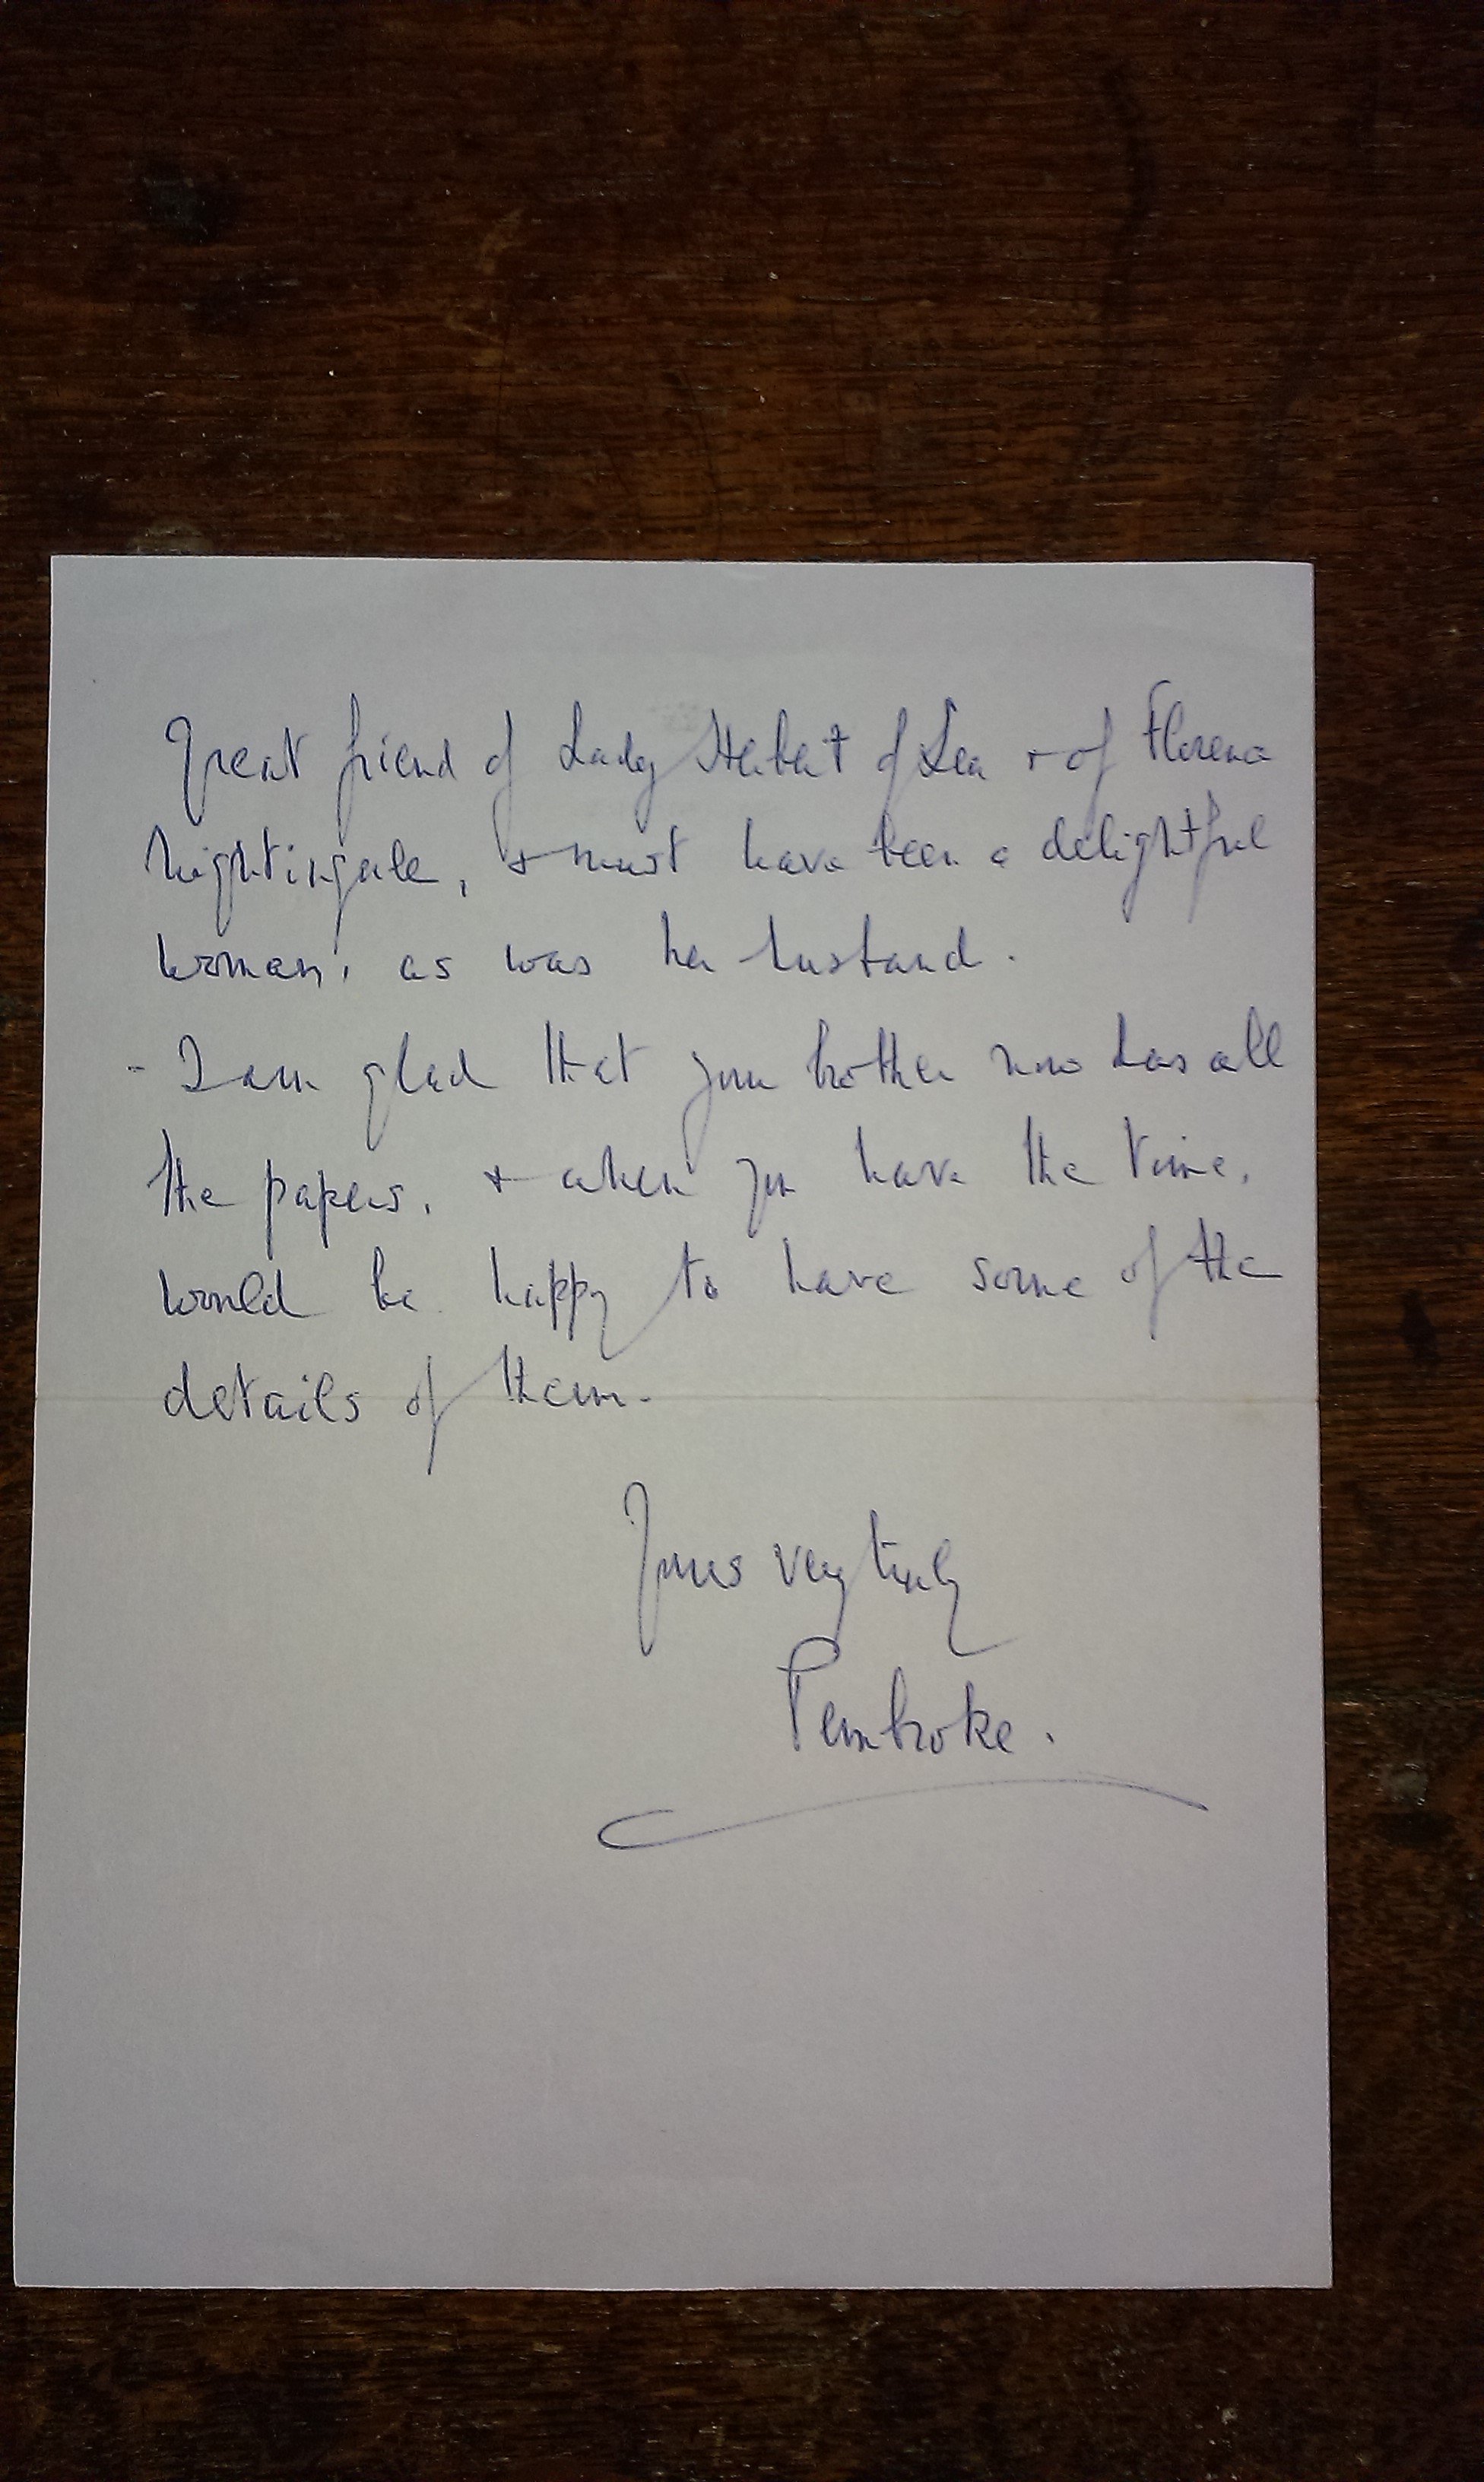 Great friend of Lady Herbert of Lea + of Florence
Nightingale, + must have been a delightful
woman, as was her husband.
- I am glad that your brother now has all
the papers, + when you have the time,
would be happy to have some of the
details of them.
Yours very truly
Pembroke.